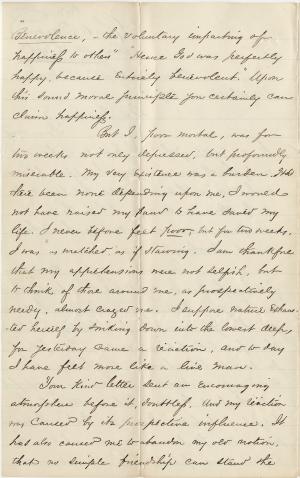 "Benevolence, - the voluntary imparting of
happiness to others" "Hence God was perfectly
happy, because entirely benevolent." Upon
this sound moral principle you certainly can
claim happiness.
But I, poor mortal, was for
two weeks not only depressed, but profoundly
miserable. My very existence was a burden. Had
there been none depending upon me, I would
not have raised my hand to have saved my
life. I never before felt poor, but for two weeks
I was as wretched as if starving. I am thankful
that my apprehensions were not selfish, but
to think of those around me, as prospectively
needy, almost crazed me. I suppose nature exhaus-
ted herself by sinking down into the lowest deeps
for yesterday came a reaction, and to day
I have felt more like a live man.
Your kind letter sent an encouraging
atmosphere before it, doubtless. And my reaction
was caused by its prospective influence. It
has also caused me to abandon my old notion,
that no simple friendship can stand the